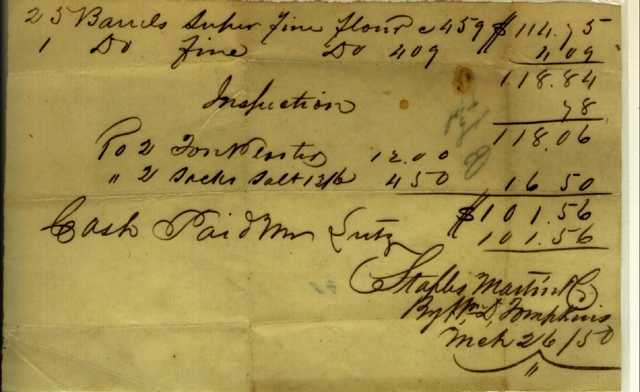 25 Barrels Super Fine flour @ 459 $114.75
1 Do Fine Do 409 4 09
118.84
Inspection 78
118.06
To 2 Ton Plaster 12.00
" 2 Sacks Salt 4 50 16 50
$101.56
Cash Paid Mr Lutz 101.56
Staples Martin & Co
By Wm D. Tompkins
Mch 26/50
"